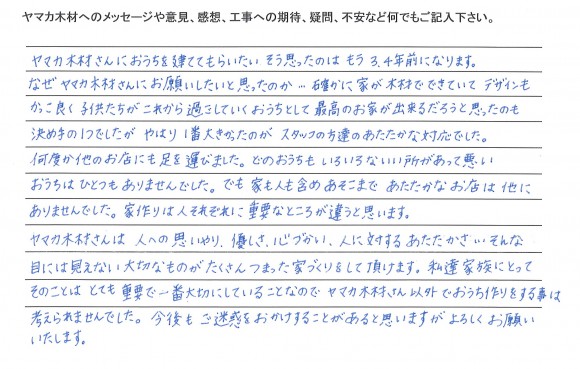 ヤマカ木材へのメッセージや意見、感想、工事への期待、疑問、不安など何でもご記入下さい。
ヤマカ木材さんにおうちを建ててもらいたい そう思ったのは もう 3,4年前になります。
なぜ ヤマカ木材さんにお願いしたいと思ったのか… 確かに家が木材でできていて デザインも
かっこ良く 子供たちが これから過ごしていくおうちとして 最高のお家が出来るだろうと思ったのも
決め手の1つでしたが やはり 1番大きかったのが スタッフの方達のあたたかな対応でした。
何度か他のお店にも足を運びました。どのおうちも いろいろないい所があって悪い
おうちはひとつもありませんでした。でも 家も人も含め あそこまで あたたかなお店は 他に
ありませんでした。家作りは人それぞれに 重要なところが違うと思います。
ヤマカ木材さんは 人への思いやり、優しさ、心づかい、人に対するあたたかさ…そんな
目には見えない大切なものがたくさんつまった家づくりをして頂けます。私達家族にとって
そのことは とても重要で一番大切にしていることなので ヤマカ木材さん以外でおうち作りをする事は
考えられませんでした。今後も ご迷惑をおかけすることがあると思いますが よろしくお願い
いたします。